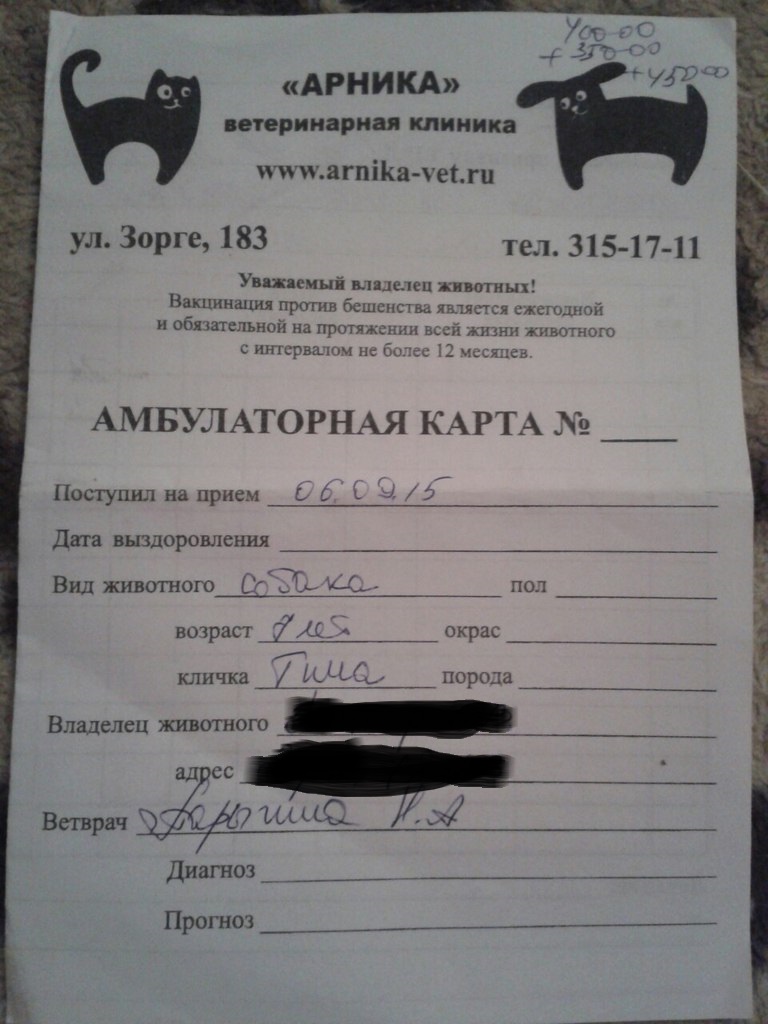 400-00
+ 350-00
+ 450-00
«АРНИКА»
ветеринарная клиника
www.arnika-vet.ru
ул. Зорге, 183 тел. 315-17-11
Уважаемый владелец животных!
Вакцинация против бешенства является ежегодной
и обязательной на протяжении всей жизни животного
с интервалом не более 12 месяцев.
АМБУЛАТОРНАЯ КАРТА №
Поступил на прием 06.09.15
Дата выздоровления
Вид животного собака пол
возраст лет окрас
кличка Тима порода
Владелец животного
адрес
Ветврач Н.А
Диагноз
Прогноз